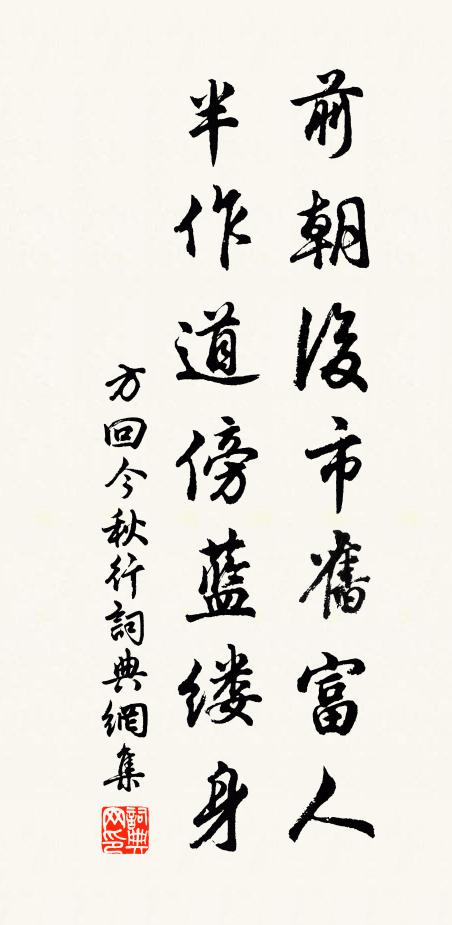 前朝後市舊富人
半作道傍藍缕身
方回今秋行詞典網集
詞典网印